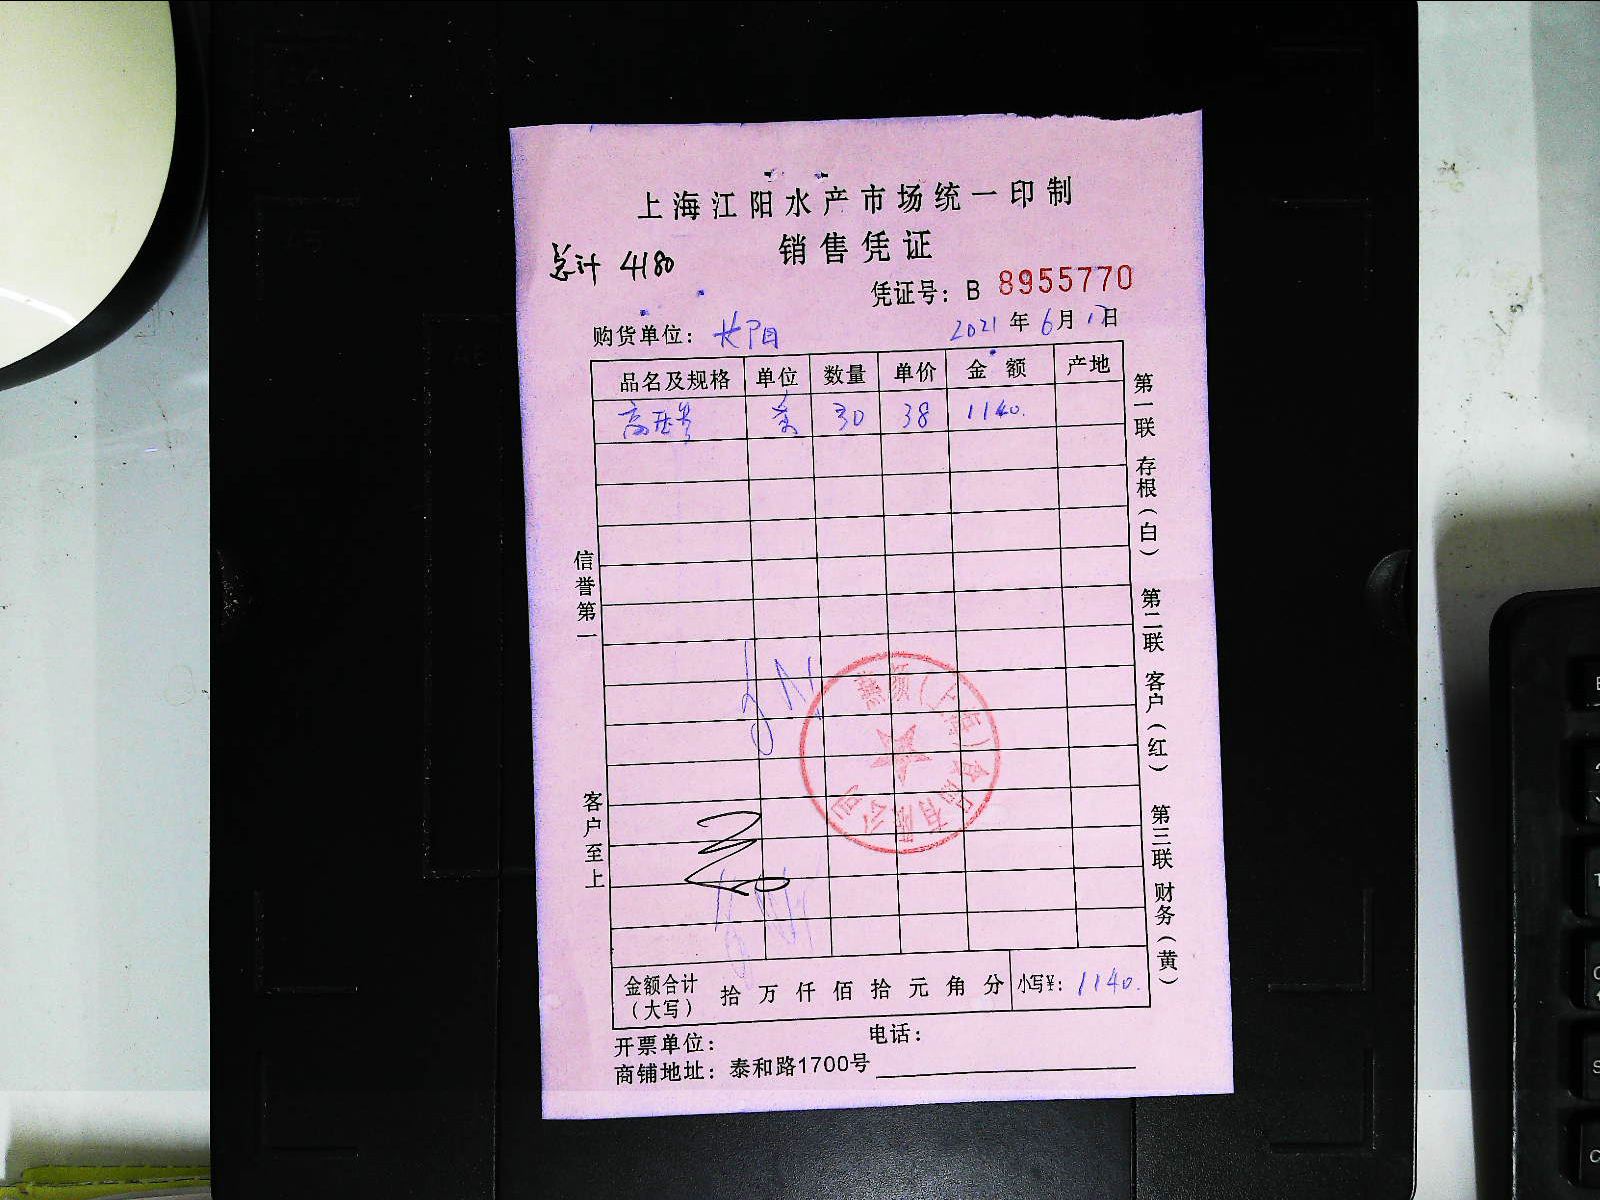 上海江阳水产市场统一印制
销售凭证
总计 4180
凭证号：B 8955770
购货单位：长阳
2021年6月17日
品名及规格 单位 数量 单价 金额 产地
30 38 1140.
第一联 存根（白） 第二联 客户（红） 第三联 财务（黄）
信誉第一
客户至上
（上海）食品有限公司
金额合计（大写） 拾 万 仟 佰 拾 元 角 分 小写¥：1140.
开票单位： 电话：
商铺地址：泰和路1700号